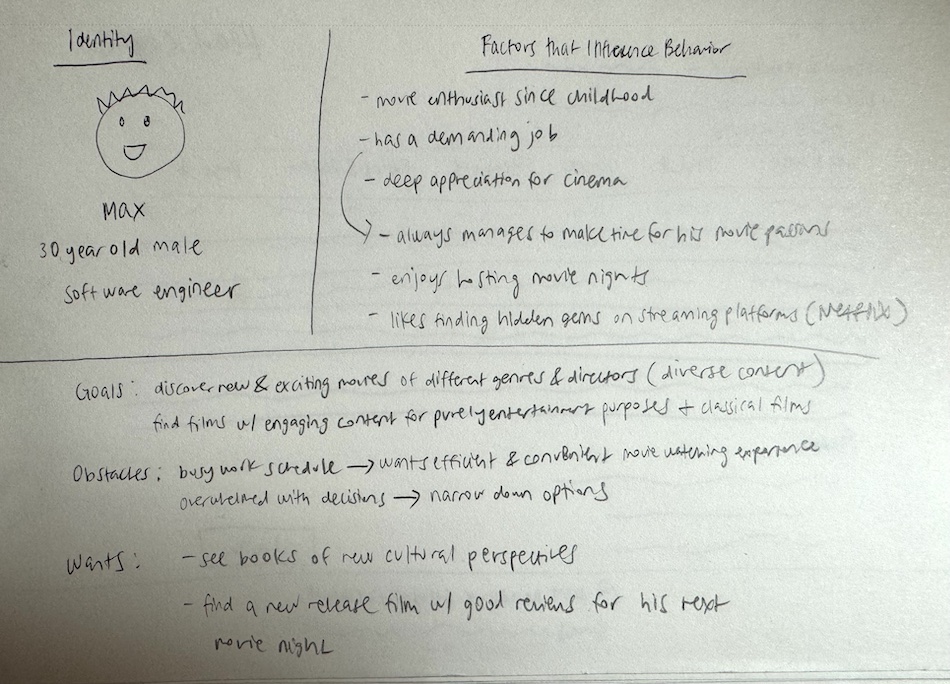 Identity
Max
30 year old male
software engineer
Factors that Influence Behavior
- movie enthusiast since childhood
- has a demanding job
- deep appreciation for cinema
- always manages to make time for his movie
- enjoys hosting movie nights
- likes finding hidden gems on streaming platforms (Netflix)
Goals: discover new & exciting movies of different genres & directors (diverse content)
find films w/ engaging content for purely entertainment purposes + classical films
Obstacles: busy work schedule → wants efficient & convenient movie watching experience
overwhelmed with decisions → narrow down options
Wants: - see books of new cultural perspectives
- find a new release film w/ good reviews for his next
movie night